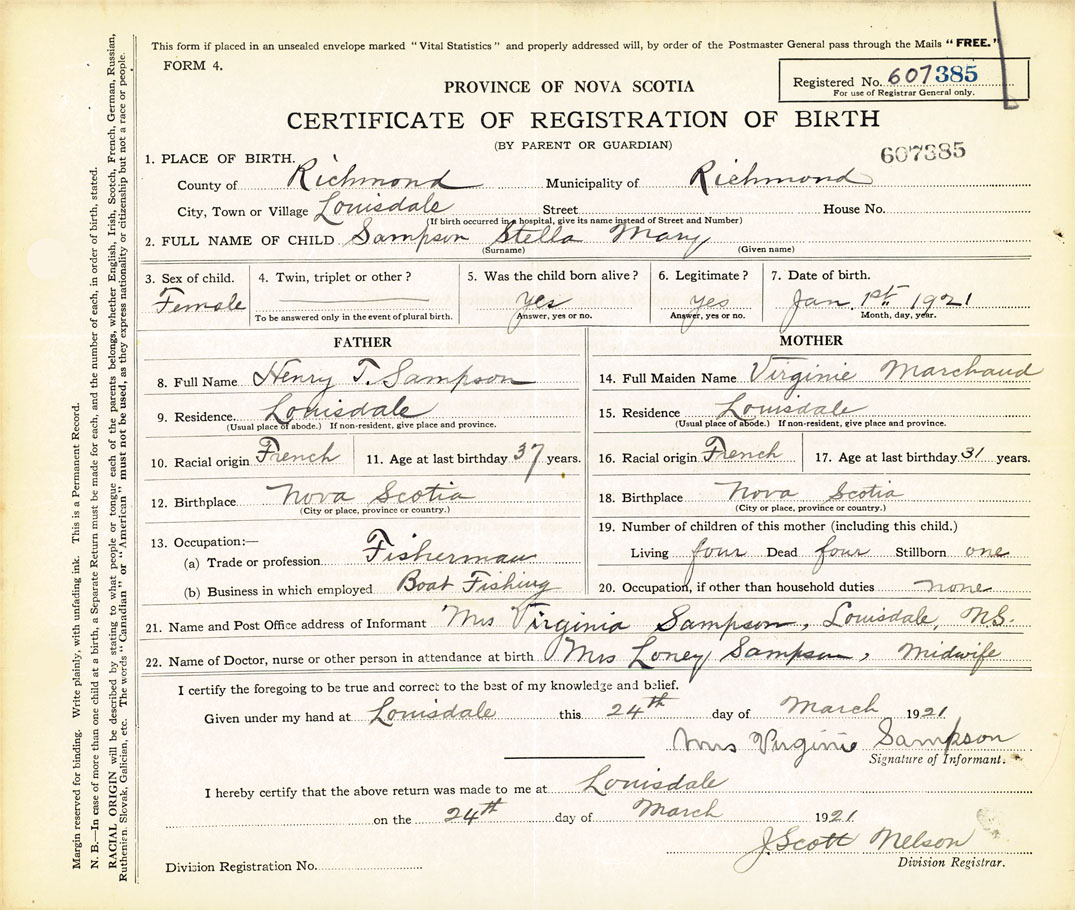 This form if placed in an unsealed envelope marked "Vital Statistics" and properly addressed will, by order of the Postmaster General pass through the Mails "FREE."
FORM 4.
Registered No. 607385
For use of Registrar General only.
PROVINCE OF NOVA SCOTIA
CERTIFICATE OF REGISTRATION OF BIRTH
(BY PARENT OR GUARDIAN)
607385
1. PLACE OF BIRTH.
County of Richmond Municipality of Richmond
City, Town or Village Louisdale Street House No.
(If birth occurred in a hospital, give its name instead of Street and Number)
2. FULL NAME OF CHILD Sampson Stella Mary
(Surname) (Given name)
3. Sex of child. 4. Twin, triplet or other? 5. Was the child born alive? 6. Legitimate? 7. Date of birth.
Female yes yes Jan. 1st 1921
To be answered only in the event of plural birth. Answer, yes or no. Answer, yes or no. Month, day, year.
FATHER
8. Full Name Henry T. Sampson
9. Residence. Louisdale
(Usual place of abode.) If non-resident, give place and province.
10. Racial origin French 11. Age at last birthday 37 years.
12. Birthplace Nova Scotia
(City or place, province or country.)
13. Occupation:—
(a) Trade or profession Fisherman
(b) Business in which employed Boat Fishing
MOTHER
14. Full Maiden Name Virginie Marchand
15. Residence Louisdale
(Usual place of abode.) If non-resident, give place and province.
16. Racial origin French 17. Age at last birthday 31 years.
18. Birthplace Nova Scotia
(City or place, province or country.)
19. Number of children of this mother (including this child.)
Living four Dead four Stillborn one
20. Occupation, if other than household duties none
21. Name and Post Office address of Informant Mrs Virginia Sampson, Louisdale, N.S.
22. Name of Doctor, nurse or other person in attendance at birth Mrs Loney Sampson, Midwife
I certify the foregoing to be true and correct to the best of my knowledge and belief.
Given under my hand at Louisdale this 24th day of March 1921.
Mrs Virginie Sampson
Signature of Informant.
I hereby certify that the above return was made to me at Louisdale
on the 24th day of March 1921.
J. Scott Nelson
Division Registrar.
Division Registration No.
Margin reserved for binding. Write plainly, with unfading ink. This is a Permanent Record.
N. B.—In case of more than one child at a birth, a Separate Return must be made for each, and the number of each, in order of birth, stated.
RACIAL ORIGIN will be described by stating to what people or tongue each of the parents belongs, whether English, Irish, Scotch, French, German, Russian,
Ruthenian, Slovak, Galician, etc. The words "Canadian" or "American" must not be used, as they express nationality or citizenship but not a race or people.